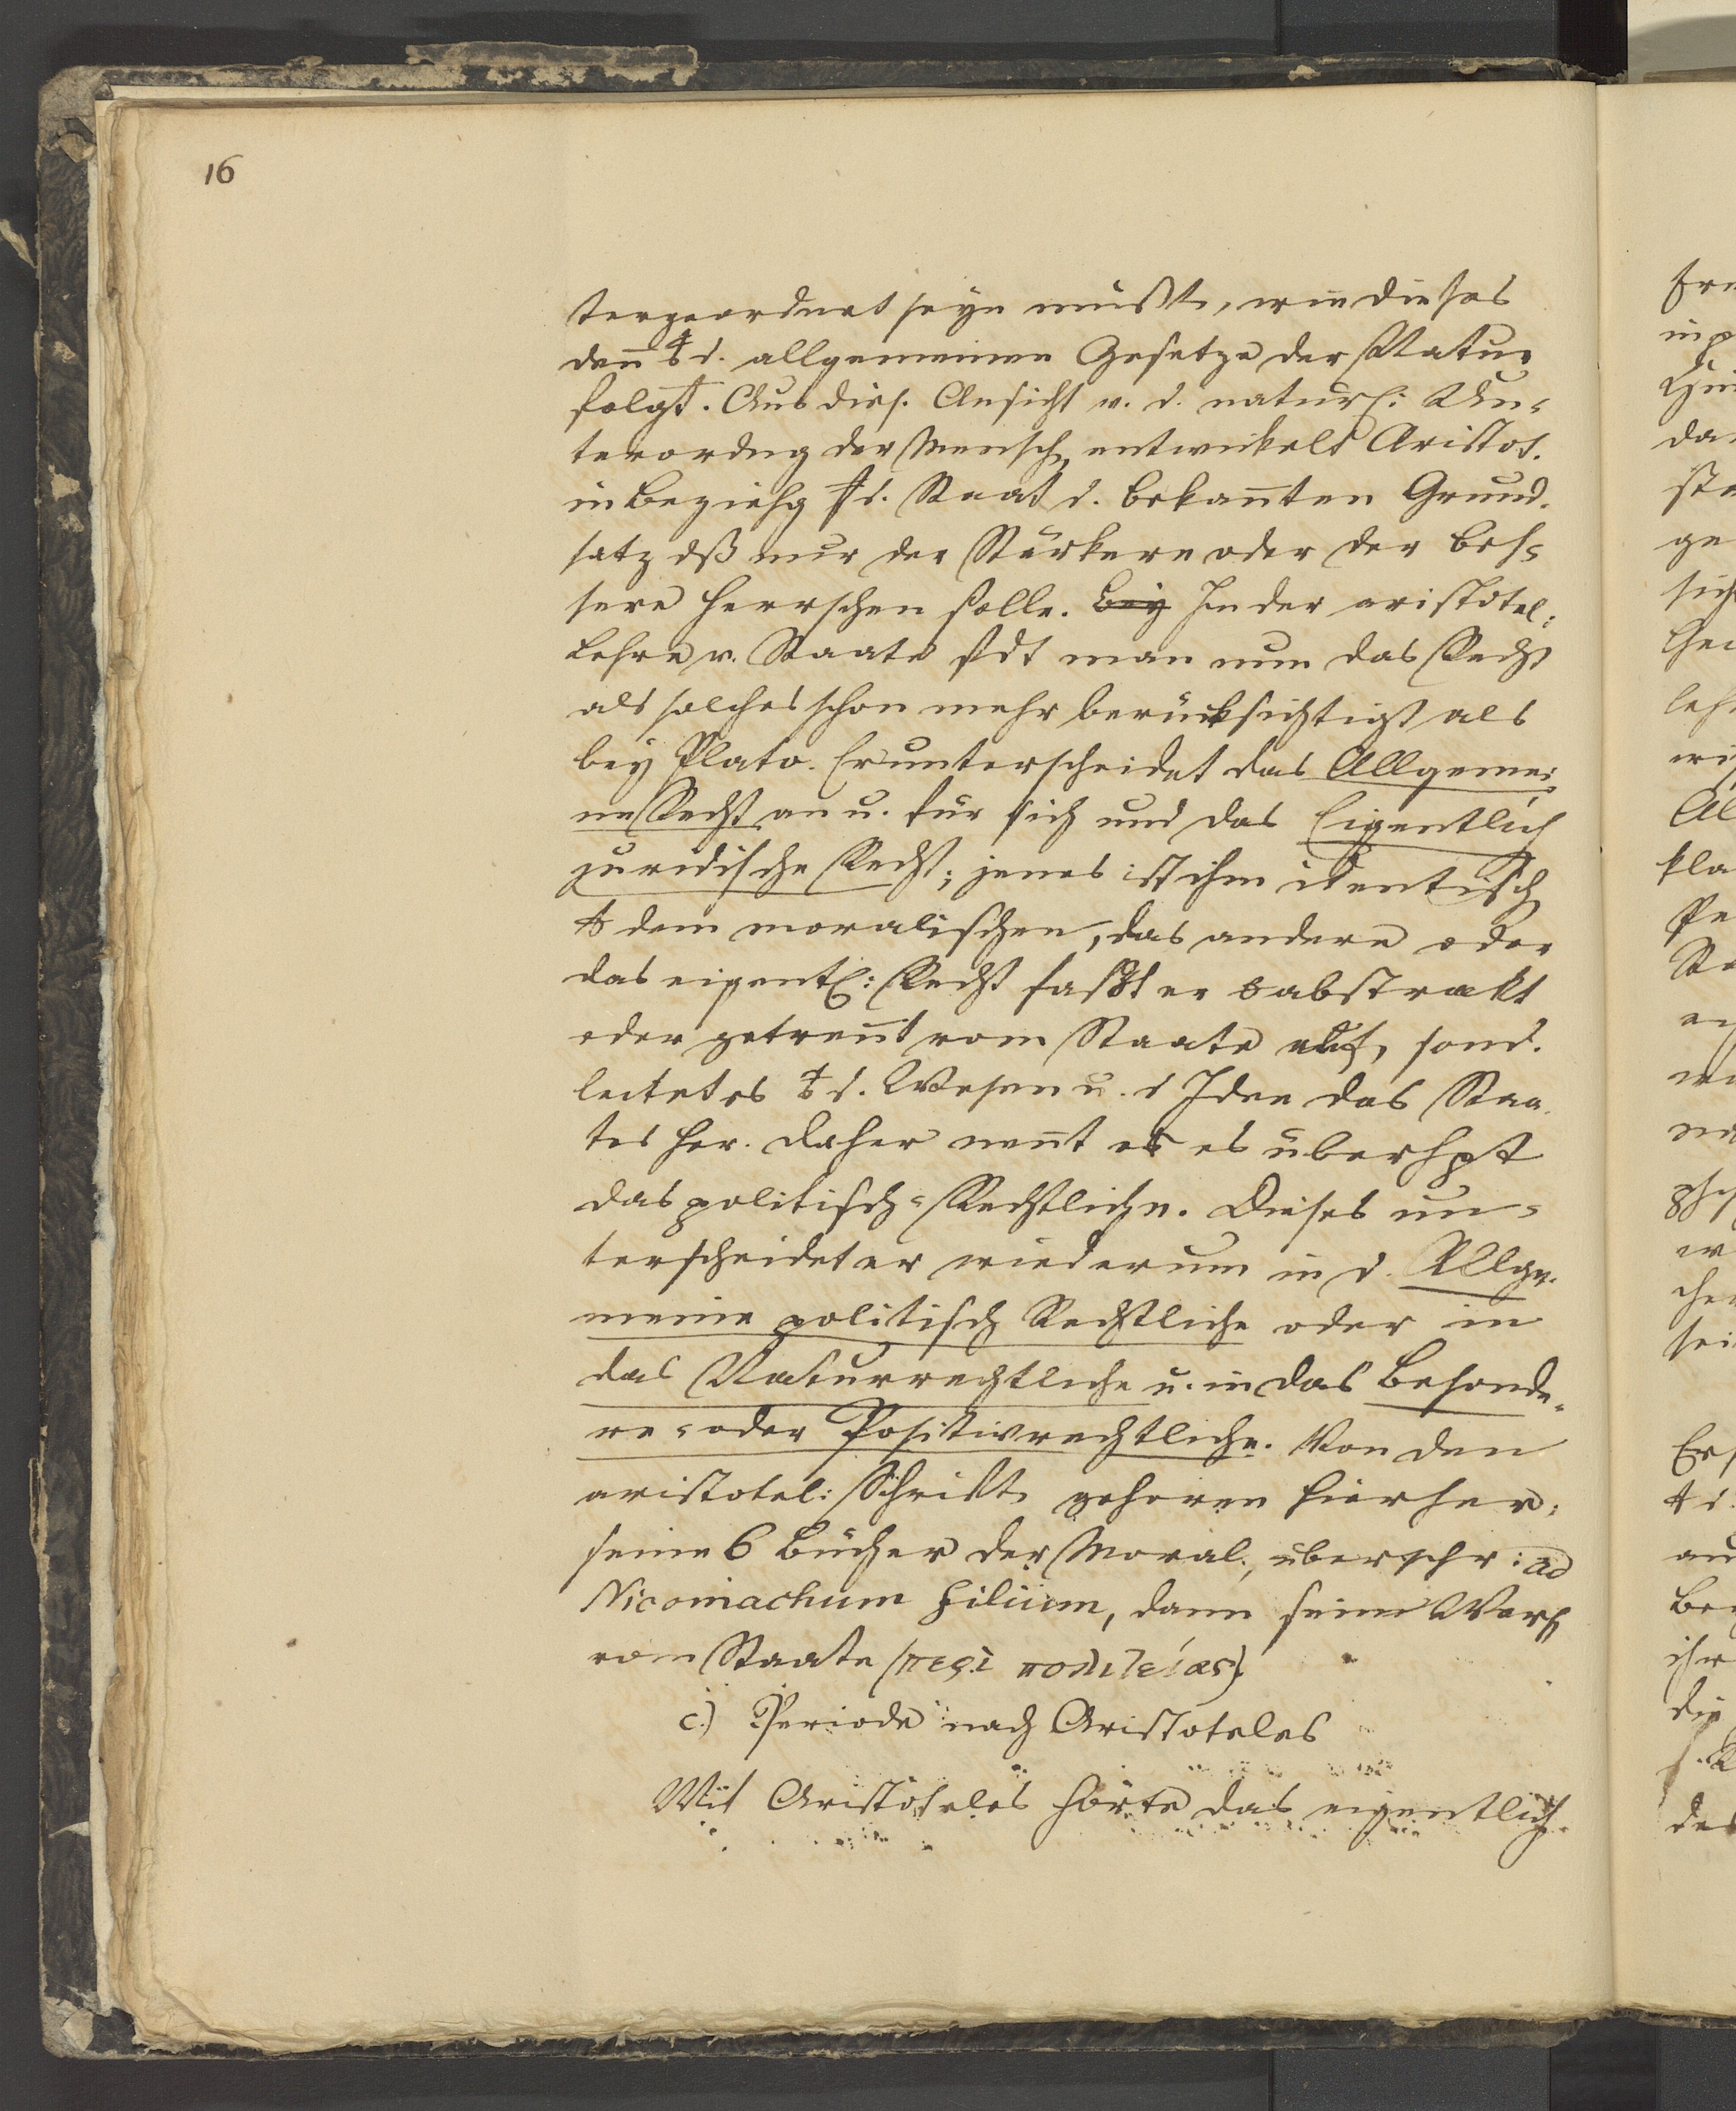 16
tergeordnet seyn müßte, wie dieses
deñ d. allgemeinen Gesetze der Natur
folgt. Aus dies. Ansicht v. d. natürl: Un-
terordng der Mensch entwickelt Aristot.
in Beziehg d. Staat d. bekañten Grund-
satz dß nur der Stärkere oder der bes-
sere herrschen solle. Bey In der aristotel:
Lehre v. Staate fdt man nun das Recht
als solches schon mehr berücksichtigt als
bey Plato. Er unterscheidet das Allgemei-
ne Recht an u. für sich und das Eigentlich
juridische Recht; jenes ist ihm identisch
dem moralischen, das andere oder
das eigentl: Recht faßt er abstrakt
oder getreñt vom Staate auf, sond.
leitet es d. Wesen u. d Idee des Staa-
tes her. Daher neñt er es überhpt
das politisch-Rechtliche. Dieses un-
terscheidet er wiederum in d. Allge-
meine politisch Rechtliche oder in
das Naturrechtliche u. in das Besonde-
re- oder Positivrechtliche. Von den
aristotel: Schrift gehören hierher:
seine 6 Bücher der Moral, überschr: ad
Nicomachum filium, dann seine Werk
vom Staate (περὶ πολιτείας)
c.) Periode nach Aristoteles
Mit Aristoteles hörte das eigentlich